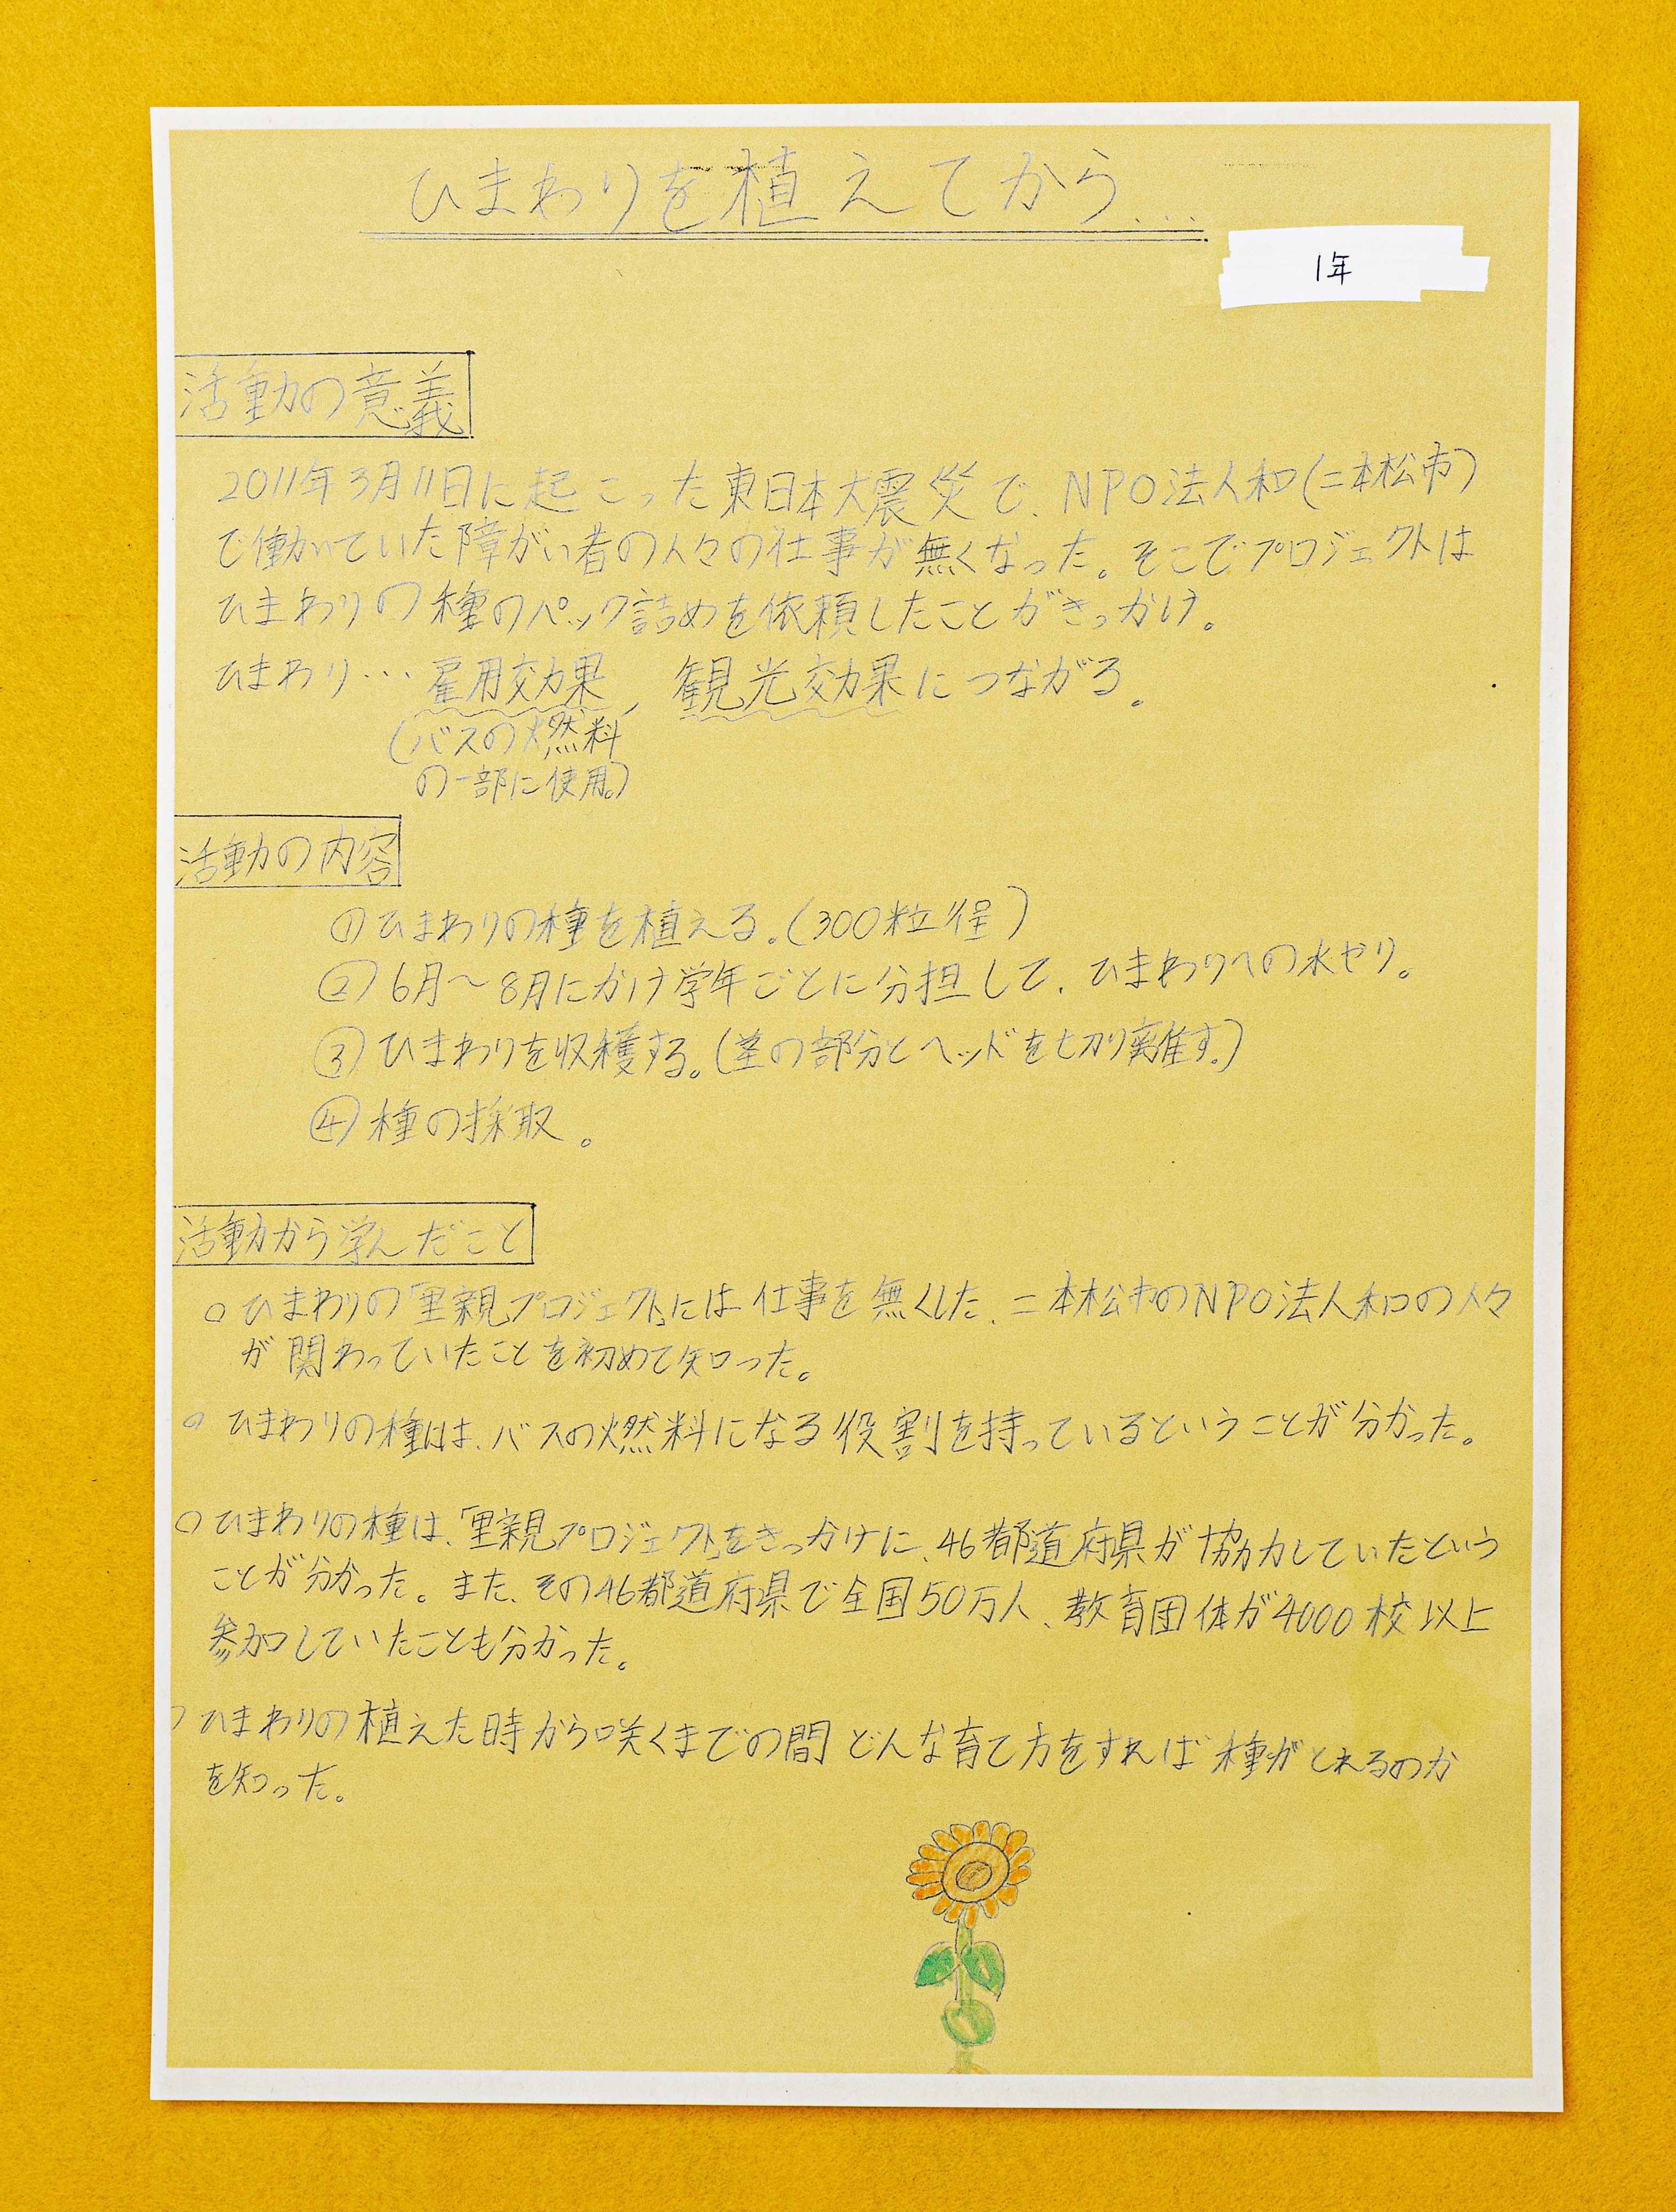 ひまわりを植えてから...
1年
活動の意義
2011年3月11日に起こった東日本大震災で、NPO法人和(二本松市)
で働いていた障がい者の人々の仕事が無くなった。そこでプロジェクトは
ひまわりの種のパック詰めを依頼したことがきっかけ。
ひまわり…雇用効果、観光効果につながる。
(バスの燃料
の一部に使用。)
活動の内容
①ひまわりの種を植える。(300粒程)
②6月～8月にかけ学年ごとに分担して、ひまわりへの水やり。
③ひまわりを収穫する。(茎の部分とヘッドを切り離す。)
④種の採取。
活動から学んだこと
○ひまわりの「里親プロジェクト」には仕事を無くした、二本松市のNPO法人和の人々
が関わっていたことを初めて知った。
○ひまわりの種は、バスの燃料になる役割を持っているということが分かった。
○ひまわりの種は、「里親プロジェクト」をきっかけに、46都道府県が協力していたという
ことが分かった。また、その46都道府県で全国50万人、教育団体が4000校以上
参加していたことも分かった。
○ひまわりの植えた時から咲くまでの間どんな育て方をすれば種がとれるのか
を知った。